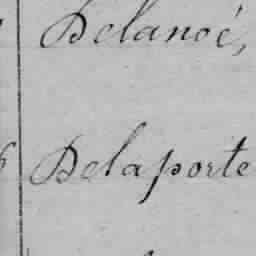 Delanoé,
Delaporte